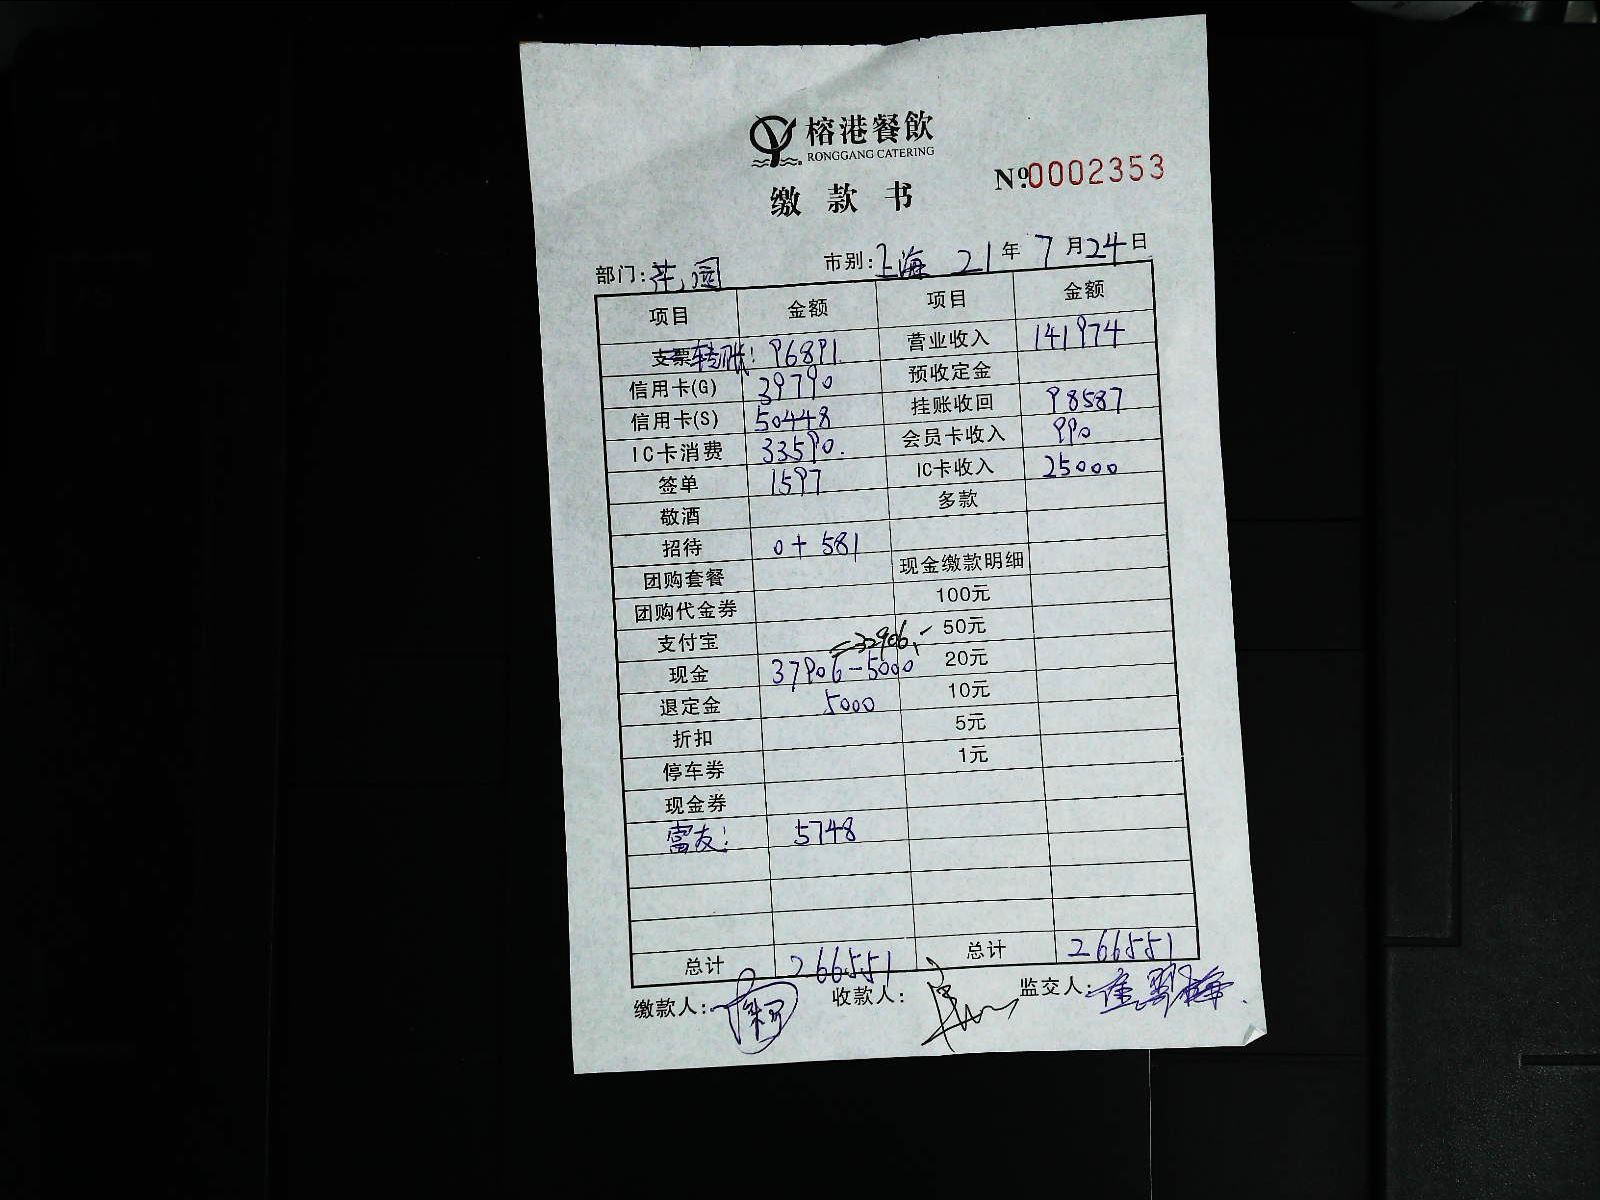 榕港餐飲
RONGGANG CATERING
缴款书 №0002353
部门:花园 市别:上海 21年7月24日
项目 金额 项目 金额
支票转账: 96891. 营业收入 141974
信用卡(G) 39790 预收定金
信用卡(S) 50448 挂账收回 98587
IC卡消费 33590. 会员卡收入 990
签单 1597 IC卡收入 25000
敬酒 多款
招待 0+581
团购套餐 现金缴款明细
团购代金券 100元
支付宝 =32906.- 50元
现金 37906-5000 20元
退定金 5000 10元
折扣 5元
停车券 1元
现金券
富友: 5748
总计 266551 总计 266551
缴款人: 收款人: 监交人: